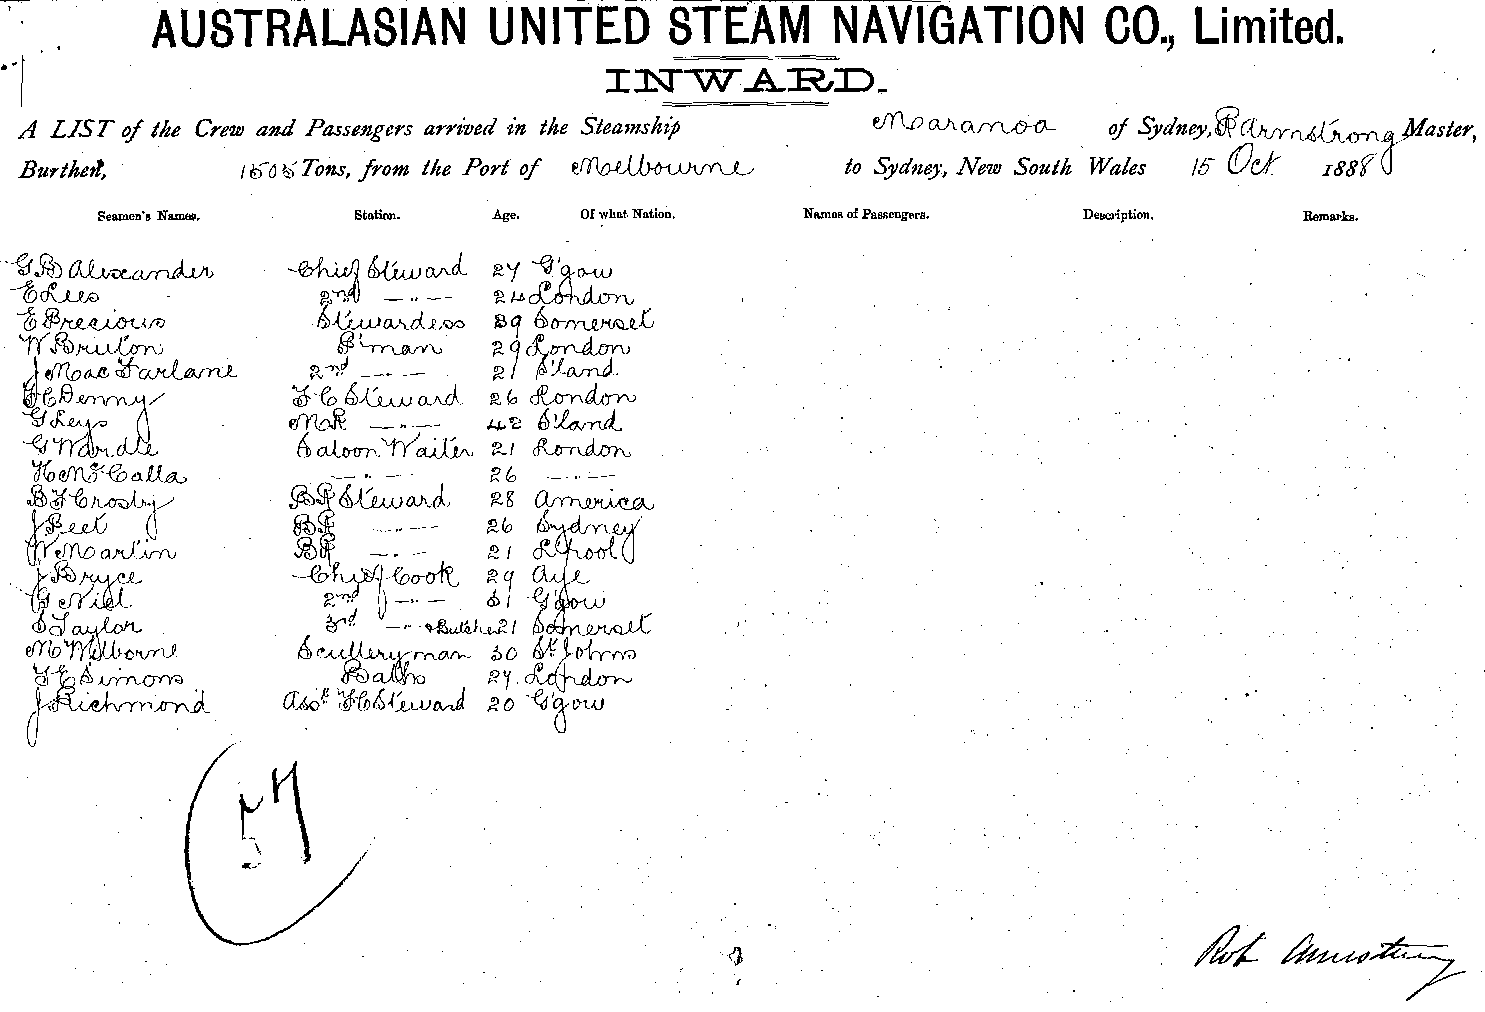 AUSTRALASIAN UNITED STEAM NAVIGATION CO., Limited.
INWARD.
A LIST of the Crew and Passengers arrived in the Steamship Maranoa of Sydney, R Armstrong Master,
Burthen, 1505 Tons, from the Port of Melbourne to Sydney, New South Wales 15 Oct 1888
Seamen's Names. Station. Age. Of what Nation. Names of Passengers. Description. Remarks.
G B Alexander Chief Steward 27 G'gow
E Lees 2nd —"— 24 London
E Precious Stewardess 39 Somerset
W Bruton P'man 29 London
J MacFarlane 2nd —"— 21 S'land
F C Denny F C Steward 26 London
G Leys M R —"— 42 S'land
G Wardle Saloon Waiter 21 London
H McCalla —"— 26 —"—
B F Crosby B R Steward 28 America
J Peet B R —"— 26 Sydney
W Martin B R —"— 21 L'pool
J Bryce Chief Cook 29 Aye
G Niel 2nd —"— 31 G'gow
S Taylor 3rd —"— & Butcher 21 Somerset
M Milborne Sculleryman 30 St Johns
F E Simons Baths 27 London
J Richmond Asst F C Steward 20 G'gow
57
Rob Armstrong